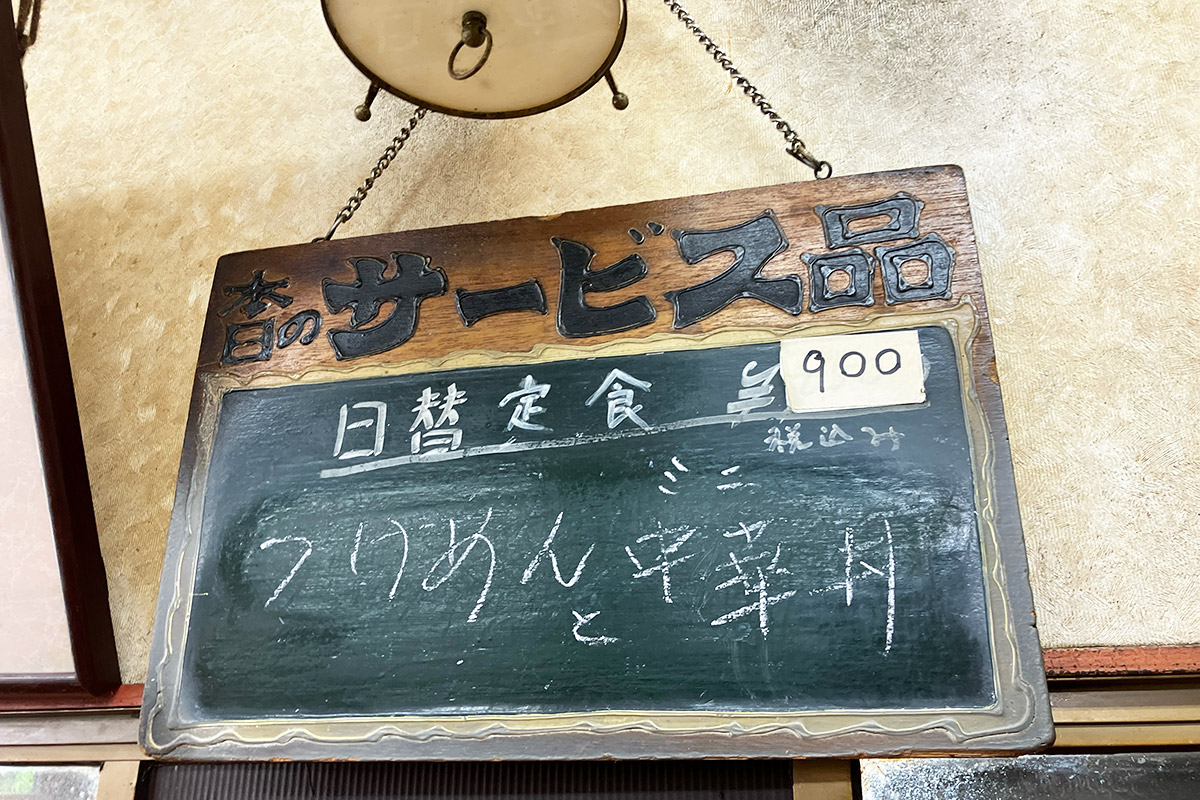 本日のサービス品
日替定食 ¥900
税込み
ミニ
つけめん中華丼
と